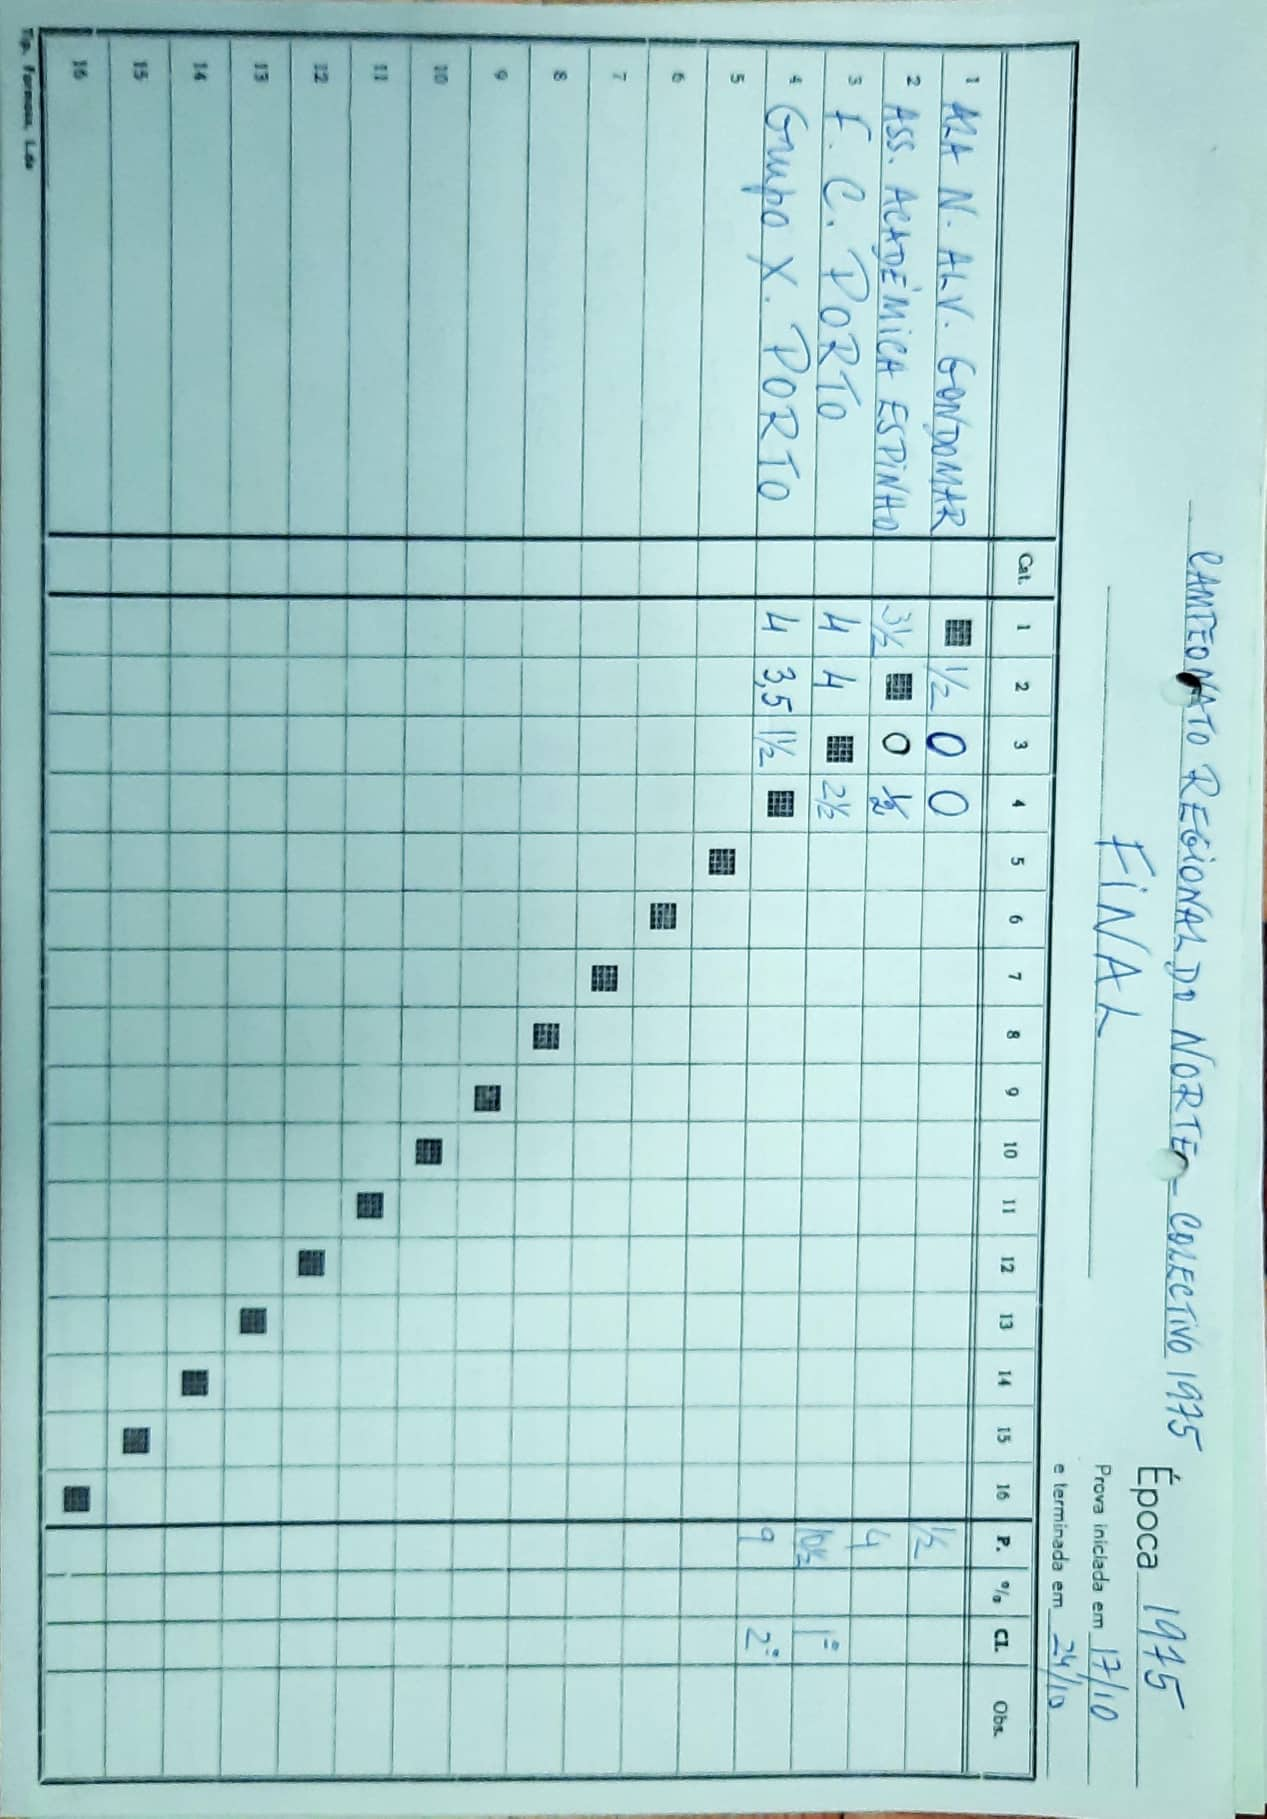 CAMPEONATO REGIONAL DO NORTE - COLECTIVO 1975 Época 1975
FINAL Prova iniciada em 17/10
e terminada em 24/10
Cat. 1 2 3 4 5 6 7 8 9 10 11 12 13 14 15 16 P. % Cl. Obs.
1 ALA N. ALV. GONDOMAR ½ 0 0 ½
2 ASS. ACADÉMICA ESPINHO 3½ 0 ½ 4
3 F. C. PORTO 4 4 2½ 10½ 1º
4 Grupo X. PORTO 4 3,5 1½ 9 2º
5
6
7
8
9
10
11
12
13
14
15
16
Tip. Formosa, L.da